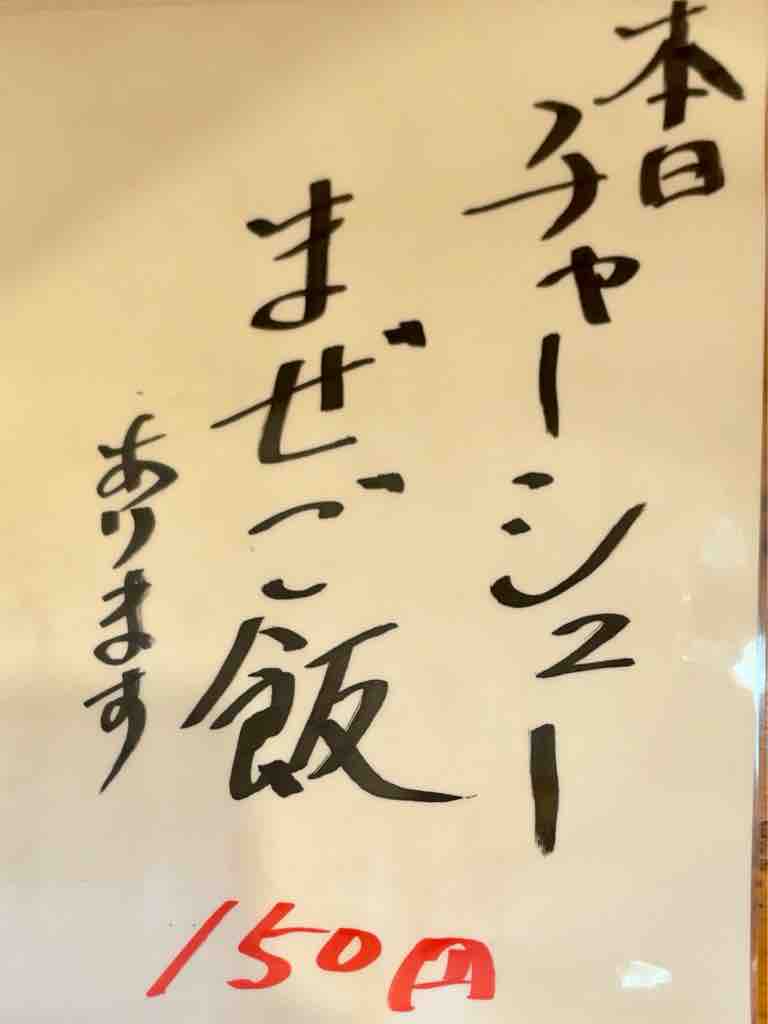 本日
チャーシュー
まぜご飯
あります
150円